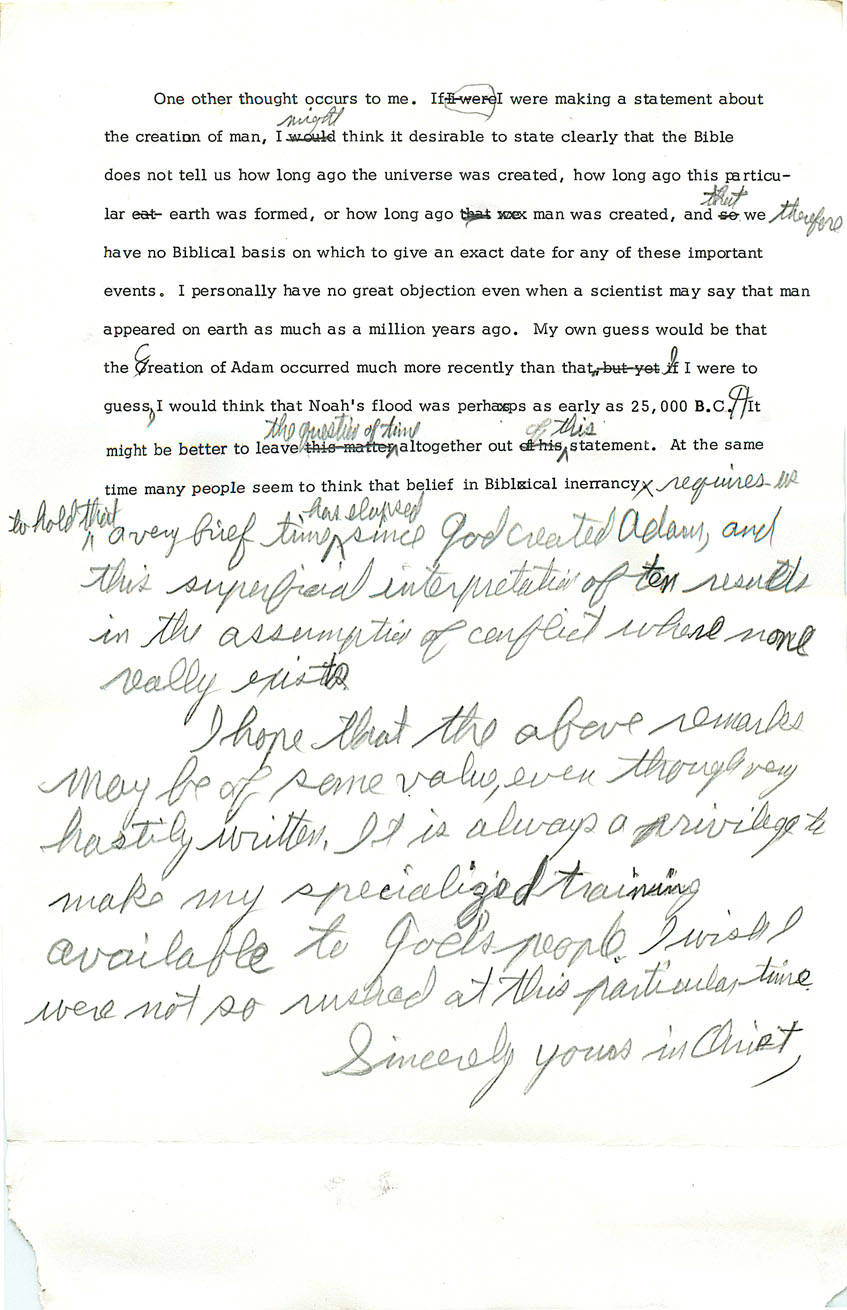 One other thought occurs to me. If I were I were making a statement about
might
the creation of man, I would think it desirable to state clearly that the Bible
does not tell us how long ago the universe was created, how long ago this particu-
that
lar eat- earth was formed, or how long ago that xxx man was created, and so we therefore
have no Biblical basis on which to give an exact date for any of these important
events. I personally have no great objection even when a scientist may say that man
appeared on earth as much as a million years ago. My own guess would be that
the Creation of Adam occurred much more recently than that, but yet if I were to
guess, I would think that Noah's flood was perhaps as early as 25,000 B.C. It
the question of time of this
might be better to leave this matter altogether out of his statement. At the same
time many people seem to think that belief in Biblical inerrancy requires us
to hold that has elapsed
a very brief time since God created Adam, and
this superficial interpretation of ten results
in the assumption of conflict where none
really exists
I hope that the above remarks
may be of some value, even though very
hastily written. It is always a privilege to
make my specialized training
available to God's people. I wish I
were not so rushed at this particular time.
Sincerely yours in Christ,